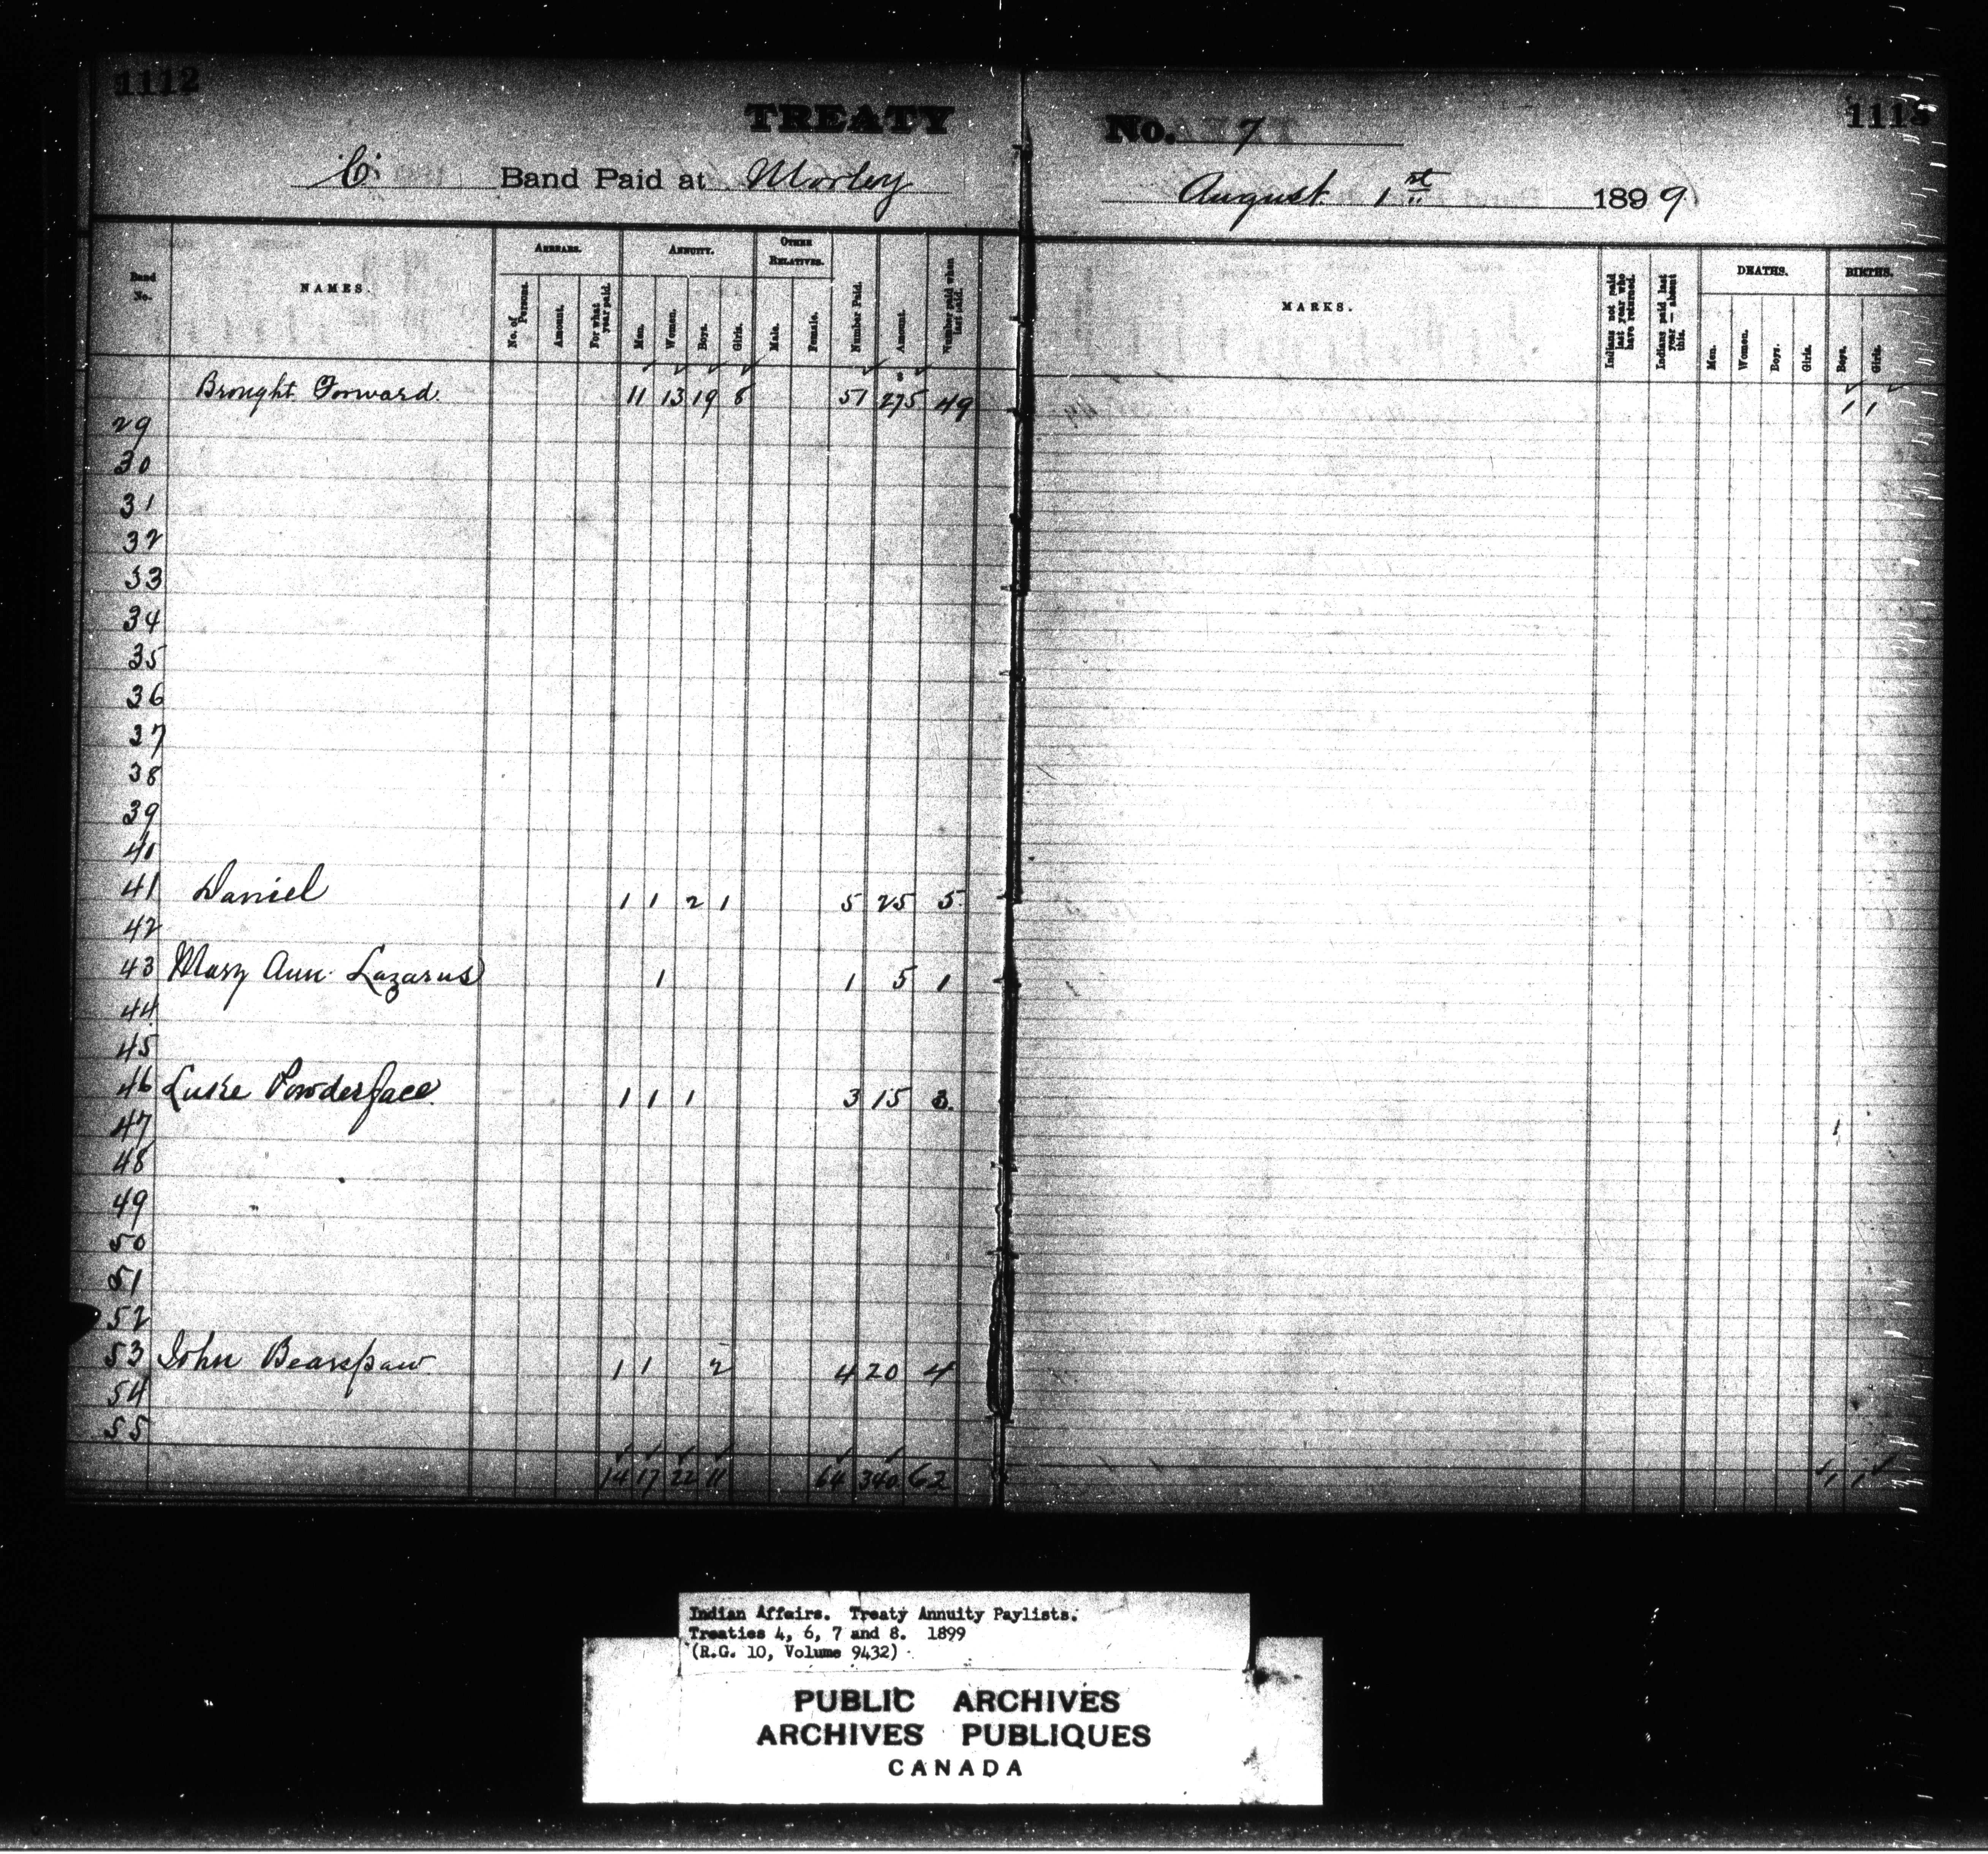 1112
TREATY
No. 7
1113
"C" Band Paid at Morley
August 1st 1899
Band No.
NAMES.
ARREARS.
No. of Persons.
Amount.
For what year paid.
ANNUITY.
Men.
Women.
Boys.
Girls.
OTHER RELATIVES.
Male.
Female.
Number Paid.
Amount.
Number paid when last paid.
MARKS.
Indians not paid last year who have returned.
Indians paid last year — absent this.
DEATHS.
Men.
Women.
Boys.
Girls.
BIRTHS.
Boys.
Girls.
Brought Forward. 11 13 19 8 51 275 49 1 1
29
30
31
32
33
34
35
36
37
38
39
40
41 Daniel 1 1 2 1 5 25 5
42
43 Mary Ann Lazarus 1 1 5 1
44
45
46 Luke Powderface 1 1 1 3 15 3.
47 1
48
49
50
51
52
53 John Bearspaw 1 1 2 4 20 4
54
55
14 17 22 11 64 340 62 1 1
Indian Affairs. Treaty Annuity Paylists.
Treaties 4, 6, 7 and 8. 1899
(R.G. 10, Volume 9432)
PUBLIC ARCHIVES
ARCHIVES PUBLIQUES
CANADA